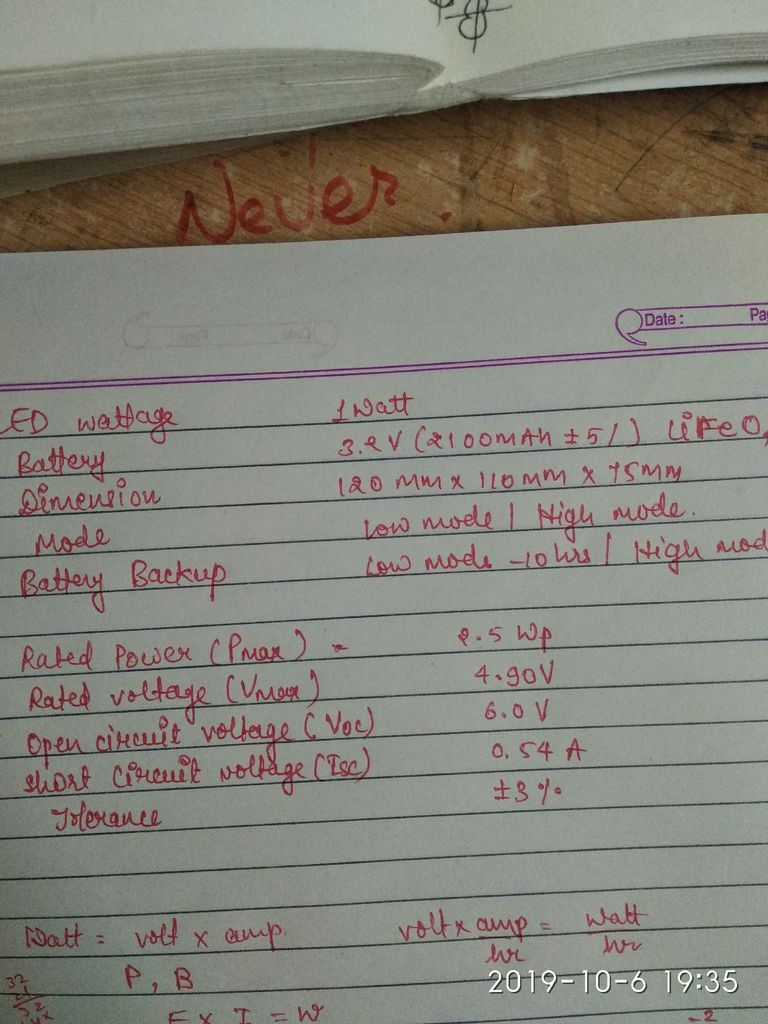 Never.
Date : Pa
ED wattage 1 Watt
Battery 3.2V (2100mAh ±5/) LiFeO
Dimension 120 mm x 110mm x 75mm
Mode Low mode / High mode.
Battery Backup Low mode -10 hrs / High mod
Rated Power (Pmax) - 2.5 Wp
Rated voltage (Vmax) 4.90V
Open circuit voltage (Voc) 6.0 V
Short circuit voltage (Isc) 0.54 A
Tolerance ±3%
Watt = volt x amp. volt x amp/hr = watt/hr
P, B
E x I = W
2019-10-6 19:35